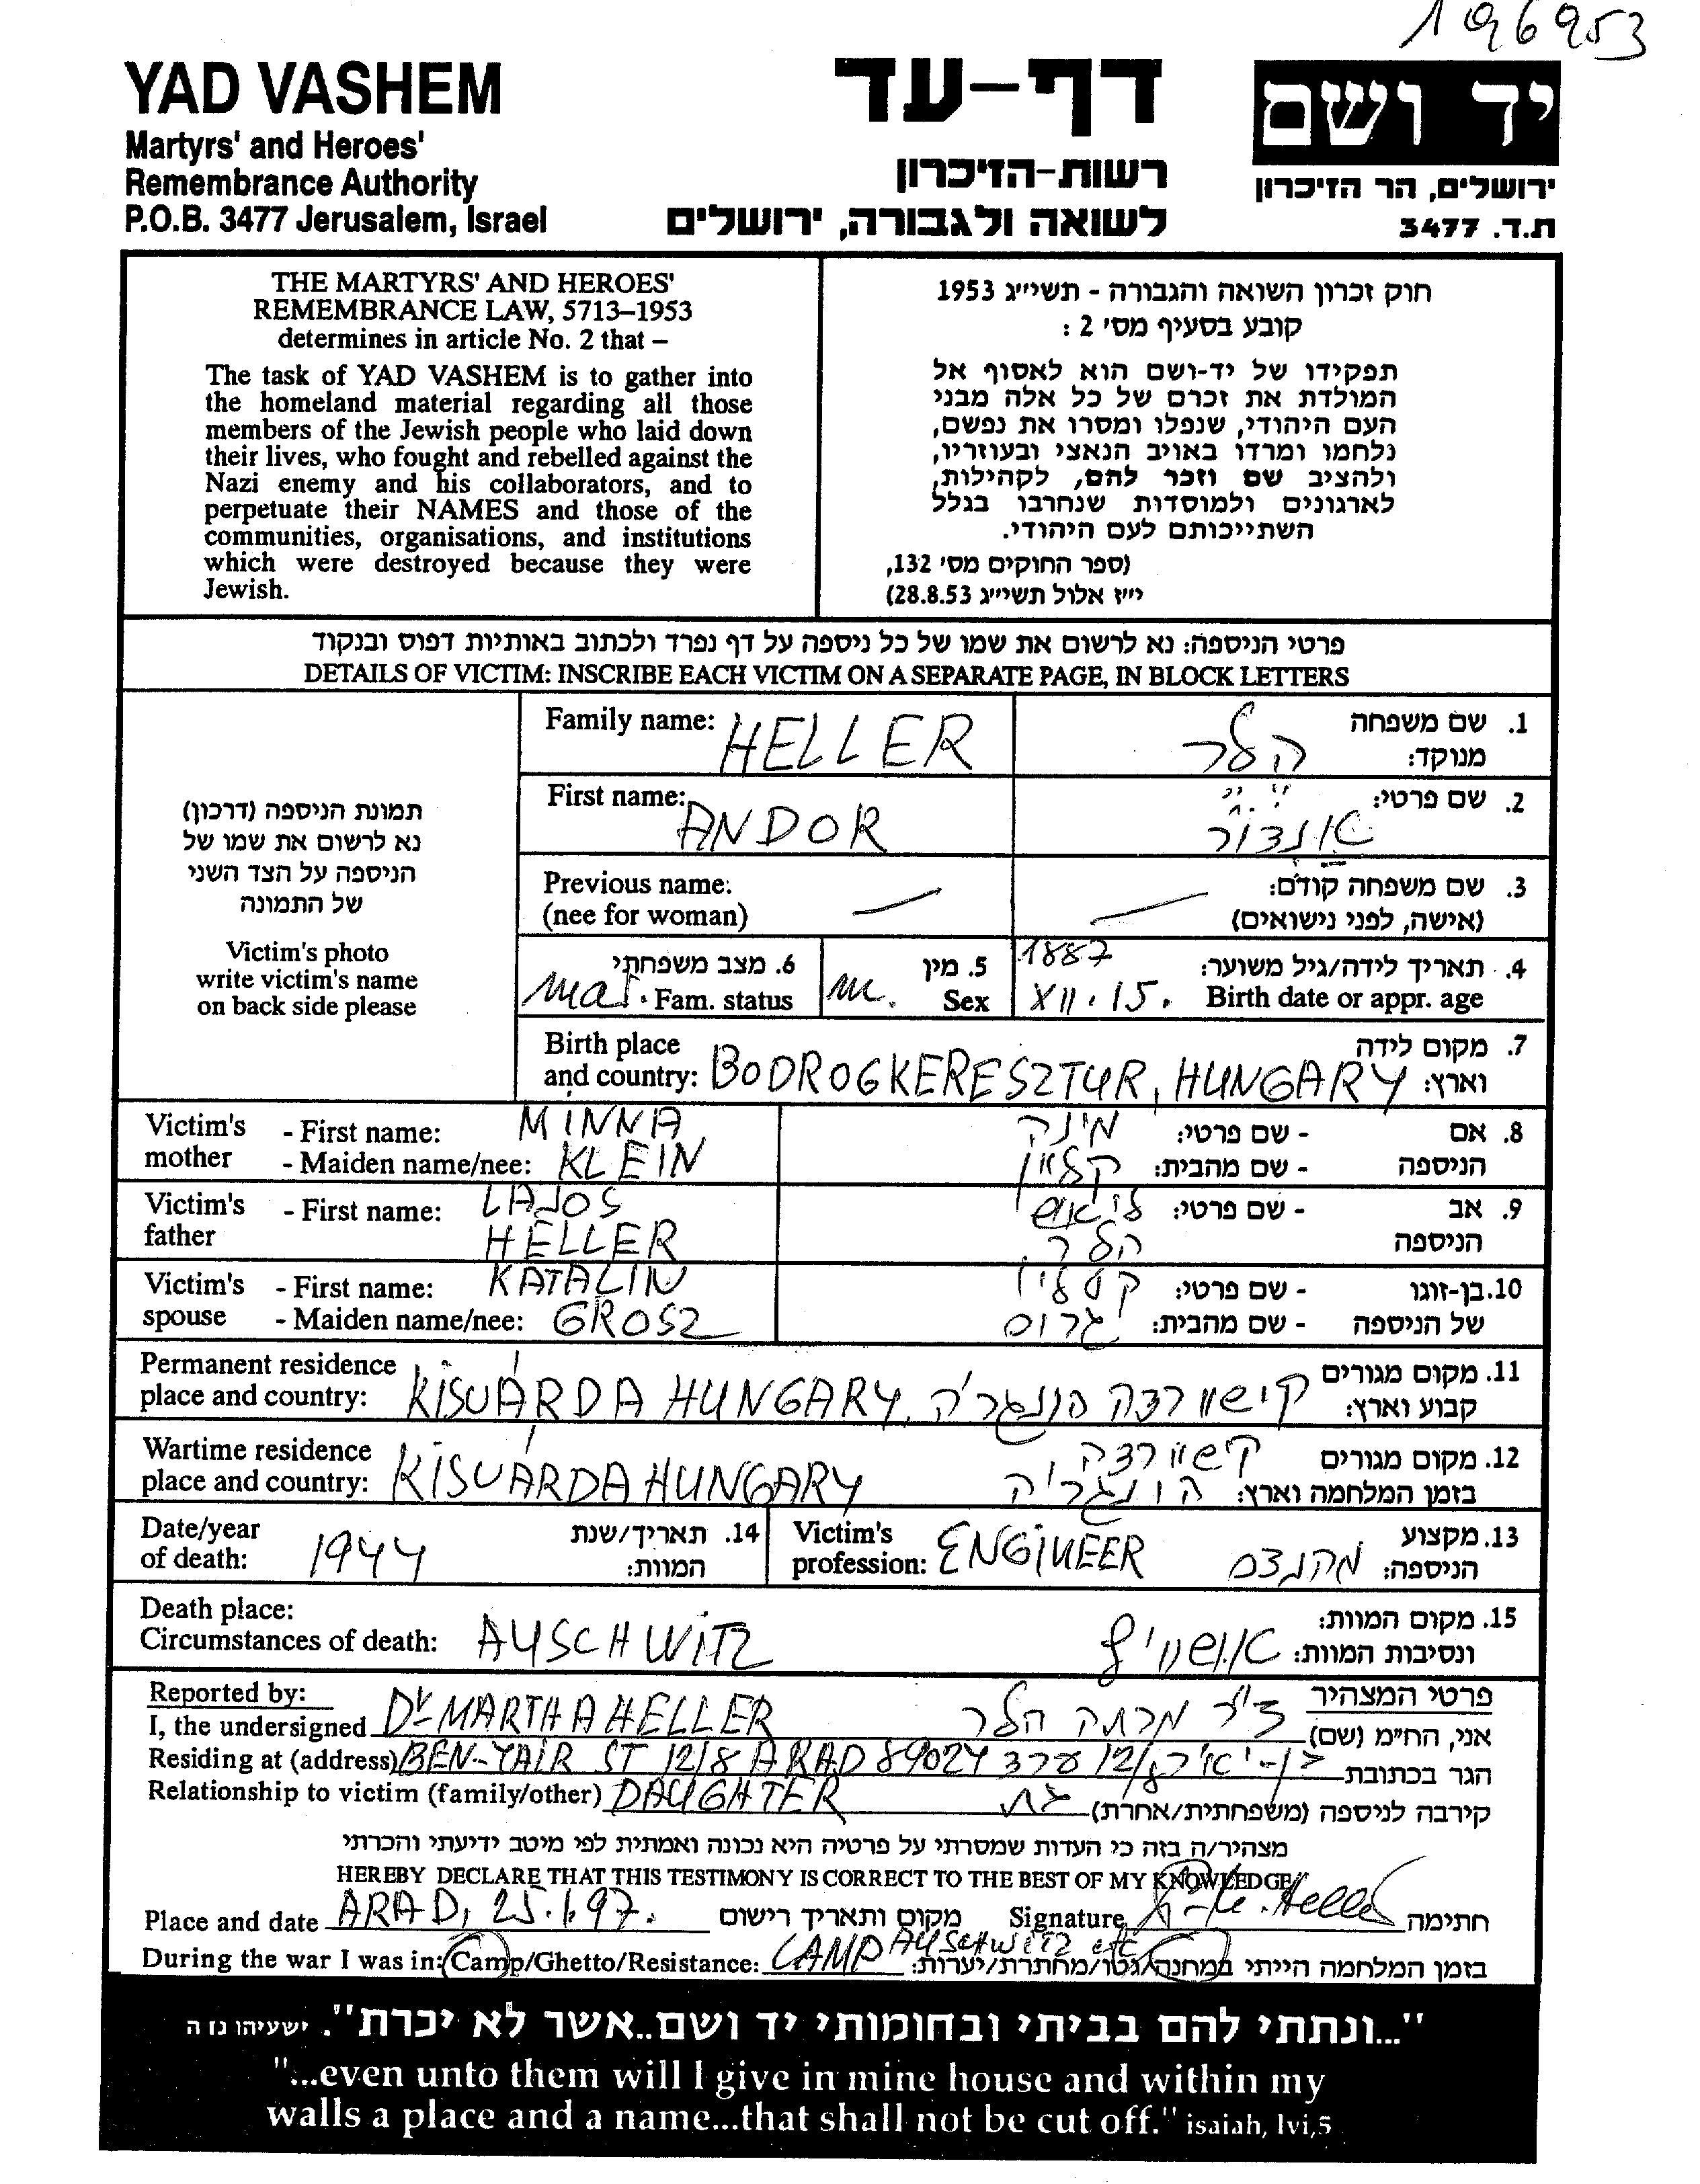 196953
YAD VASHEM
Martyrs' and Heroes'
Remembrance Authority
P.O.B. 3477 Jerusalem, Israel
דף-עד
רשות-הזיכרון
לשואה ולגבורה, ירושלים
יד ושם
ירושלים, הר הזיכרון
ת.ד. 3477
THE MARTYRS' AND HEROES'
REMEMBRANCE LAW, 5713–1953
determines in article No. 2 that –
The task of YAD VASHEM is to gather into
the homeland material regarding all those
members of the Jewish people who laid down
their lives, who fought and rebelled against the
Nazi enemy and his collaborators, and to
perpetuate their NAMES and those of the
communities, organisations, and institutions
which were destroyed because they were
Jewish.
חוק זכרון השואה והגבורה - תשי״ג 1953
קובע בסעיף מס' 2 :
תפקידו של יד-ושם הוא לאסוף אל
המולדת את זכרם של כל אלה מבני
העם היהודי, שנפלו ומסרו את נפשם,
נלחמו ומרדו באויב הנאצי ובעוזריו,
ולהציב שם וזכר להם, לקהילות,
לארגונים ולמוסדות שנחרבו בגלל
השתייכותם לעם היהודי.
(ספר החוקים מס' 132,
י״ז אלול תשי״ג 28.8.53)
פרטי הניספה: נא לרשום את שמו של כל ניספה על דף נפרד ולכתוב באותיות דפוס ובנקוד
DETAILS OF VICTIM: INSCRIBE EACH VICTIM ON A SEPARATE PAGE, IN BLOCK LETTERS
תמונת הניספה (דרכון)
נא לרשום את שמו של
הניספה על הצד השני
של התמונה
Victim's photo
write victim's name
on back side please
Family name: HELLER
הלר
1. שם משפחה
מנוקד:
First name: ANDOR
אנדור
2. שם פרטי:
Previous name: —
(nee for woman)
3. שם משפחה קודם: —
(אישה, לפני נישואים)
6. מצב משפחתי
mar. Fam. status
5. מין
m. Sex
4. תאריך לידה/גיל משוער: 1887
XII. 15. Birth date or appr. age
Birth place
and country: BODROGKERESZTUR, HUNGARY
7. מקום לידה
וארץ:
Victim's mother - First name: MINNA
- Maiden name/nee: KLEIN
8. אם הניספה - שם פרטי: מינה
- שם מהבית: קליין
Victim's father - First name: LAJOS
HELLER
9. אב הניספה - שם פרטי: לאיוש
הלר
Victim's spouse - First name: KATALIN
- Maiden name/nee: GROSZ
10. בן-זוגו של הניספה - שם פרטי: קטלין
- שם מהבית: גרוס
Permanent residence
place and country: KISVÁRDA HUNGARY, קישוורדה הונגריה
11. מקום מגורים
קבוע וארץ:
Wartime residence
place and country: KISVÁRDA HUNGARY
קישוורדה
הונגריה
12. מקום מגורים
בזמן המלחמה וארץ:
Date/year
of death: 1944
14. תאריך/שנת
המוות:
Victim's
profession: ENGINEER
מהנדס
13. מקצוע
הניספה:
Death place:
Circumstances of death: AUSCHWITZ
אושוויץ
15. מקום המוות:
ונסיבות המוות:
Reported by:
פרטי המצהיר
I, the undersigned Dr MARTHA HELLER ד״ר מרתה הלר אני, הח״מ (שם)
Residing at (address) BEN-YAIR ST 12/8 ARAD 89024 בן-יאיר 12/8 ערד הגר בכתובת
Relationship to victim (family/other) DAUGHTER בת קירבה לניספה (משפחתית/אחרת)
מצהיר/ה בזה כי העדות שמסרתי על פרטיה היא נכונה ואמתית לפי מיטב ידיעתי והכרתי
HEREBY DECLARE THAT THIS TESTIMONY IS CORRECT TO THE BEST OF MY KNOWLEDGE
Place and date ARAD, 25.1.97. מקום ותאריך רישום Signature Heller חתימה
During the war I was in: Camp/Ghetto/Resistance: CAMP AUSCHWITZ etc בזמן המלחמה הייתי במחנה/גטו/מחתרת/יערות:
"...ונתתי להם בביתי ובחומותי יד ושם..אשר לא יכרת". ישעיהו נז ה
"...even unto them will I give in mine house and within my
walls a place and a name...that shall not be cut off." isaiah, lvi,5